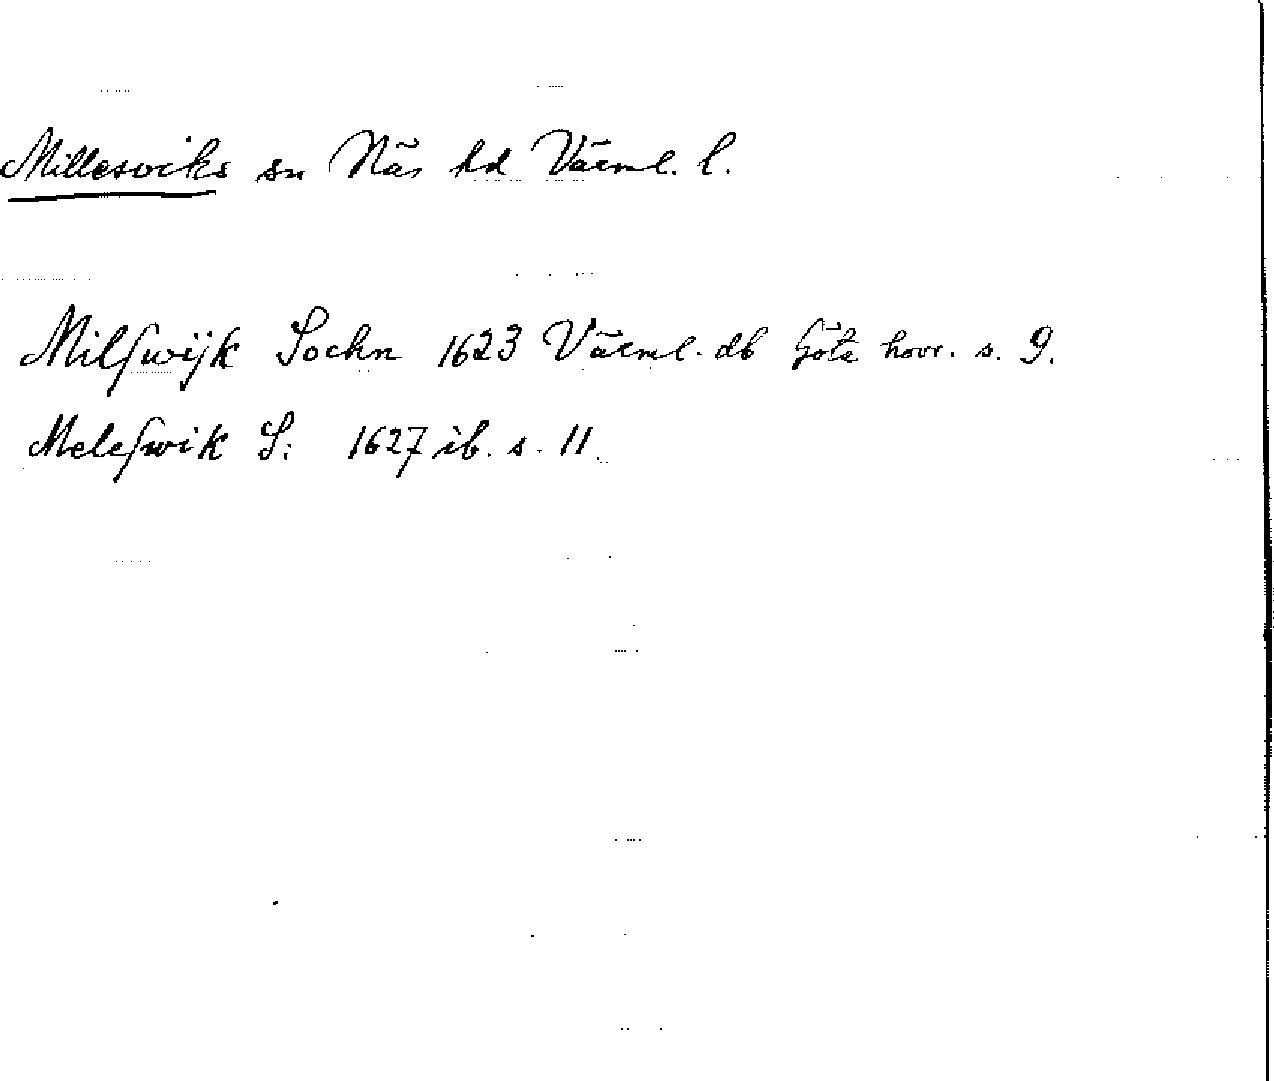 Millesviks sn Näs hd Värml. l.
Milſwijk Sochn 1623 Värml. db Göta hovr. s. 9.
Meleſwik S: 1627 ib. s. 11.